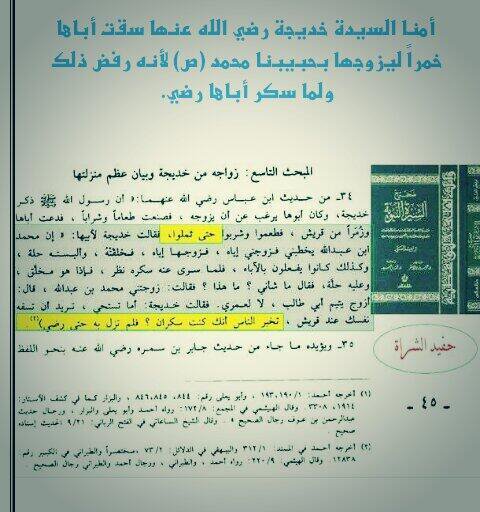 أمنا السيدة خديجة رضي الله عنها سقت أباها
خمراً ليزوجها بحبيبنا محمد (ص) لأنه رفض ذلك
ولما سكر أباها رضي.
المبحث التاسع: زواجه من خديجة وبيان عظم منزلتها
٣٤- من حديث ابن عباس رضي الله عنهما: « أن رسول الله ﷺ ذكر
خديجة، وكان أبوها يرغب عن أن يزوجه ، فصنعت طعاماً وشراباً ، فدعت أباها
وزُمَراً من قريش ، فطعموا وشربوا حتى ثملوا، فقالت خديجة لأبيها: « إن محمد
ابن عبدالله يخطبني فزوجني إياه ، فزوجها إياه، فخلقته، وألبسته حلة ،
وكذلك كانوا يفعلون بالآباء ، فلما سرى عنه سكره نظر ، فإذا هو مخلق ،
وعليه حلة، فقال ما شأني ؟ ما هذا ؟ فقالت: زوجتني محمد بن عبدالله ، قال:
أزوج يتيم أبي طالب ، لا لعمري. فقالت خديجة: أما تستحي ، تريد أن تسفه
نفسك عند قريش ، تخبر الناس أنك كنت سكران ؟ فلم تزل به حتى رضي)(٢).
٣٥- ويؤيده ما جاء من حديث جابر بن سمره رضي الله عنه بنحو اللفظ
(١) أخرجه أحمد: ١٩٣،١٩٠/١ ، وأبو يعلى رقم: ٨٤٤، ٨٤٦،٨٤٥ ، والبزار كما في كشف الأستار:
١٩١٤، ٣٣٠٨. وقال الهيثمي في المجمع: ١٧٢/٨: رواه أحمد وأبو يعلى والبزار ، ورجال حديث
عبدالرحمن بن عوف رجال الصحيح ٠. وقال الشيخ الساعاتي في الفتح الرباني: ٩/٢١ الحديث إسناده
صحيح
(٢) أخرجه أحمد في المسند: ٣١٢/١ والبيهقي في الدلائل: ٧٣/٢ ،مختصراً والطبراني في الكبير رقم:
١٢٨٣٨ وقال الهيثمي: ٢٢٠/٩: رواه أحمد ، والطبراني ، ورجال أحمد والطبراني رجال الصحيح .
صحيح
السيرة النبوية
حفيد الشراة
- ٤٥ -